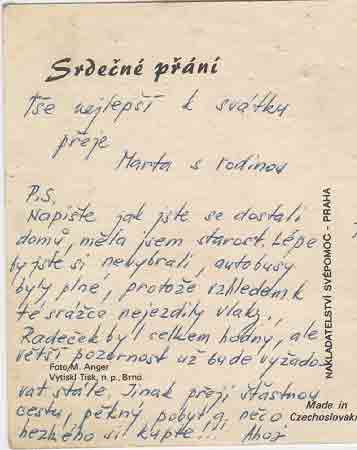 Srdečné přání
Vše nejlepší k svátku
přeje
Marta s rodinou
P.S.
Napište jak jste se dostali
domů, měla jsem starost. Lépe
by jste si nevybrali, autobusy
byly plné, protože vzhledem k
té srážce nejezdily vlaky.
Radeček byl celkem hodný, ale
větší pozornost už bude vyžado
vat stále. Jinak přeji šťastnou
cestu, pěkný pobyt a něco
hezkého si kupte!.. Ahoj
Foto M. Anger
Vytiskl Tisk, n. p., Brno
NAKLADATELSTVÍ SVÉPOMOC - PRAHA
Made in
Czechoslovak